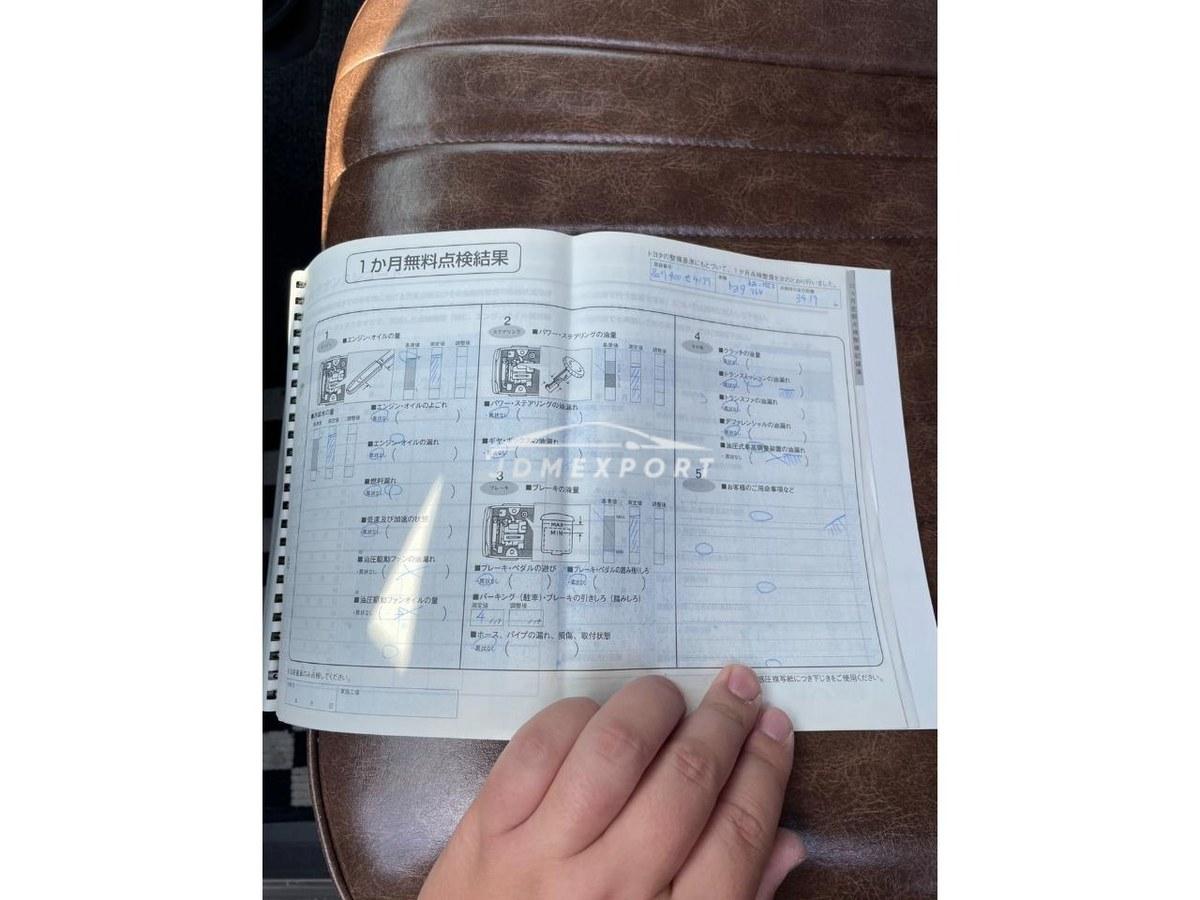 1か月無料点検結果
トヨタの整備基準にもとづいて、1か月点検整備を次のとおり行いました。
3419
1
■エンジン・オイルの量
基準値 測定値 調整値
■エンジン・オイルのよごれ
異状なし ( )
■エンジン・オイルの漏れ
異状なし ( )
■燃料漏れ
異状なし ( )
■低速及び加速の状態
異状なし ( )
■油圧駆動ファンの油漏れ
異状なし ( )
■油圧駆動ファンオイルの量
異状なし ( )
2
ステアリング
■パワー・ステアリングの油量
基準値 測定値 調整値
■パワー・ステアリングの油漏れ
異状なし ( )
■ギヤ・ボックスの油漏れ
異状なし
JDMEXPORT
3
ブレーキ
■ブレーキの液量
基準値 測定値 調整値
MAX
MIN
■ブレーキ・ペダルの遊び ■ブレーキ・ペダルの踏み残りしろ
異状なし ( ) 異状なし ( )
■パーキング(駐車)・ブレーキの引きしろ(踏みしろ)
測定値 調整値
4 ノッチ ノッチ
■ホース、パイプの漏れ、損傷、取付状態
異状なし ( )
4
■クラッチの液量
異状なし ( )
■トランスミッションの油漏れ
異状なし ( )
■トランスファの油漏れ
異状なし ( )
■デファレンシャルの油漏れ
異状なし ( )
■油圧式車高調整装置の油漏れ
異状なし ( )
5
■お客様のご用命事項など
感圧複写紙につき下じきをご使用ください。
のみ点検してください。
月 日
実施工場